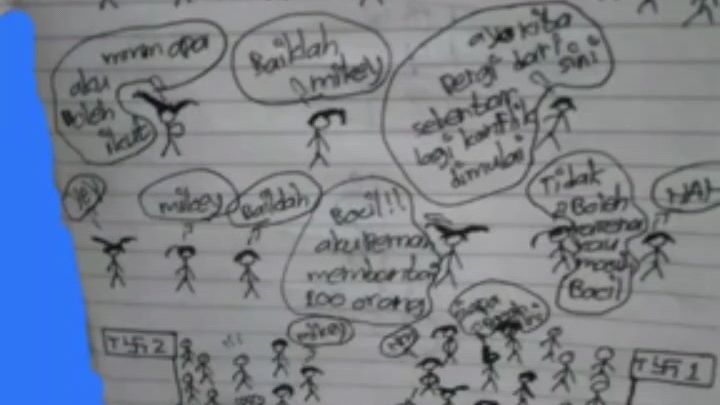 mmm apa
aku
Boleh
ikut
Baiklah
mikey
ayo kita
Pergi dari
sini
sebentar
lagi konflik
dimulai
mikey
Baiklah
Bocil!!
aku Pernah
membantai
100 orang
Tidak
Boleh
karena
kau
masih
Bocil
HAH
mikey
T卐 2
T卐 1